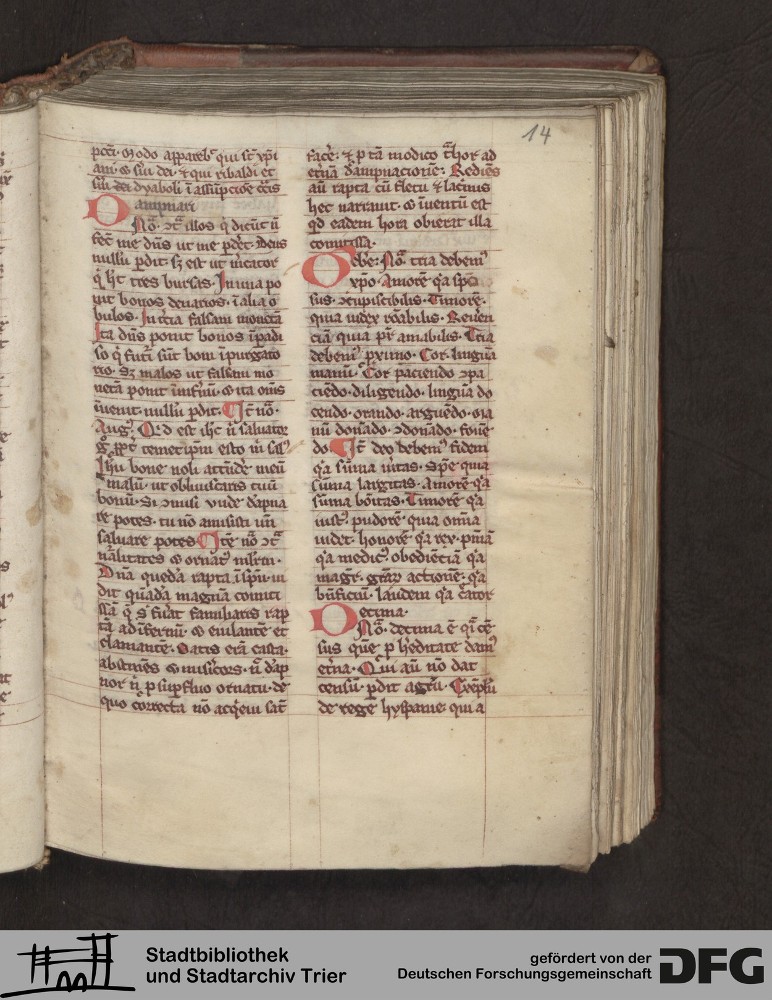 14
p̄cc̄i. Modo apparebt̄ qui sc̄t xp̄i
ani. & sūi dei. & qui ribaldi et
sūi dei dyaboli ī assūpcōe cc̄is
Dampnari
No͞. ꝯt᷑ illos q̇ dicūt ū
fec᷑ me dn̄s ut me ꝑdet᷑. Deus
nullū ꝑdit. sꝫ est ut m̄cator
q̇ hȝ tres bursas. In una po
nit bonos denarios. ī alia o
bulos. In t̄cia falsam monetā
Ita dn̄s ponit bonos īꝑadi
so q̇ fūrt᷑ sūt boni īpurgato
rio. Sꝫ malos ut falsam mo
netā ponit īnfernū. & ita om̄s
īuenit. nullū ꝑdit. It᷑ no͞.
Aug᷑. Qd est ih̄c n̄ saluator
Ih̄u bone noli attnd̄e meū
malū. ut obliuiscaris tuū
bonū. Si ꝯmisi vnde dāpna
re potes. tu nō amisisti un̄
saluare potes. Itē no͞ ꝯt᷑
uāitates & ornat᷑ mlr̄m.
Dn̄a quedā rapta ī sp̄u ui
dit quādā magnā comiti
ssā q̄ s fūat familiaris rap
tā ad īfernū. & eiulantē et
clamantē. Satis erā casta.
abstinēs & misic̄ors. n̄ dāp
nor n̄ ꝓ suꝑfluo ornatu. de
quo correcta nō acq̇eui sat᷑
facē. & ꝓ tā modico t̄hor ad
et̄nā dampnacionē. Rediēs
aū rapta cū fletu & lacmis
hec narrauit. & īuentū est
qd eadem hora obierat illa
comitissa.
Debe. No͞. tria debem᷒
xp̄o. Amorē qa sp̄cī
sus. ꝯcupiscibilis. Timorē.
quia iudex rōabilis. Reuen̄
ciā quia pr̄ amabilis. Tria
debem᷒ ꝓximo. Cor. linguā
manū. Cor paciendo ꝯpa
ciēdo. diligendo. linguā do
cendo. orando. arguēdo. ma
nū donādo. ꝯdonādo. fouē
do. It᷑ deo debem᷒ fidem
qa sūma ūitas. Spē quia
sūma largitas. Amorē qa
sūma bōitas. Timorē qa
iust᷒. pudorē quia om̄ia
uidet. honorē qa rex. pm̄ā
qa medic᷒. obediēciā qa
magr̄. gr̄aꝝ actionē. qa
bn̄ficiū. laudem qa c̄ator
Decima.
No͞. decima ē qi cē
sus quē ꝓ h̄editate dam᷒
et̄na. Qui aū nō dat
censū. ꝑdit agrū. Exēplū
de rege hyspanie. qui a
Stadtbibliothek
und Stadtarchiv Trier
gefördert von der
Deutschen Forschungsgemeinschaft
DFG